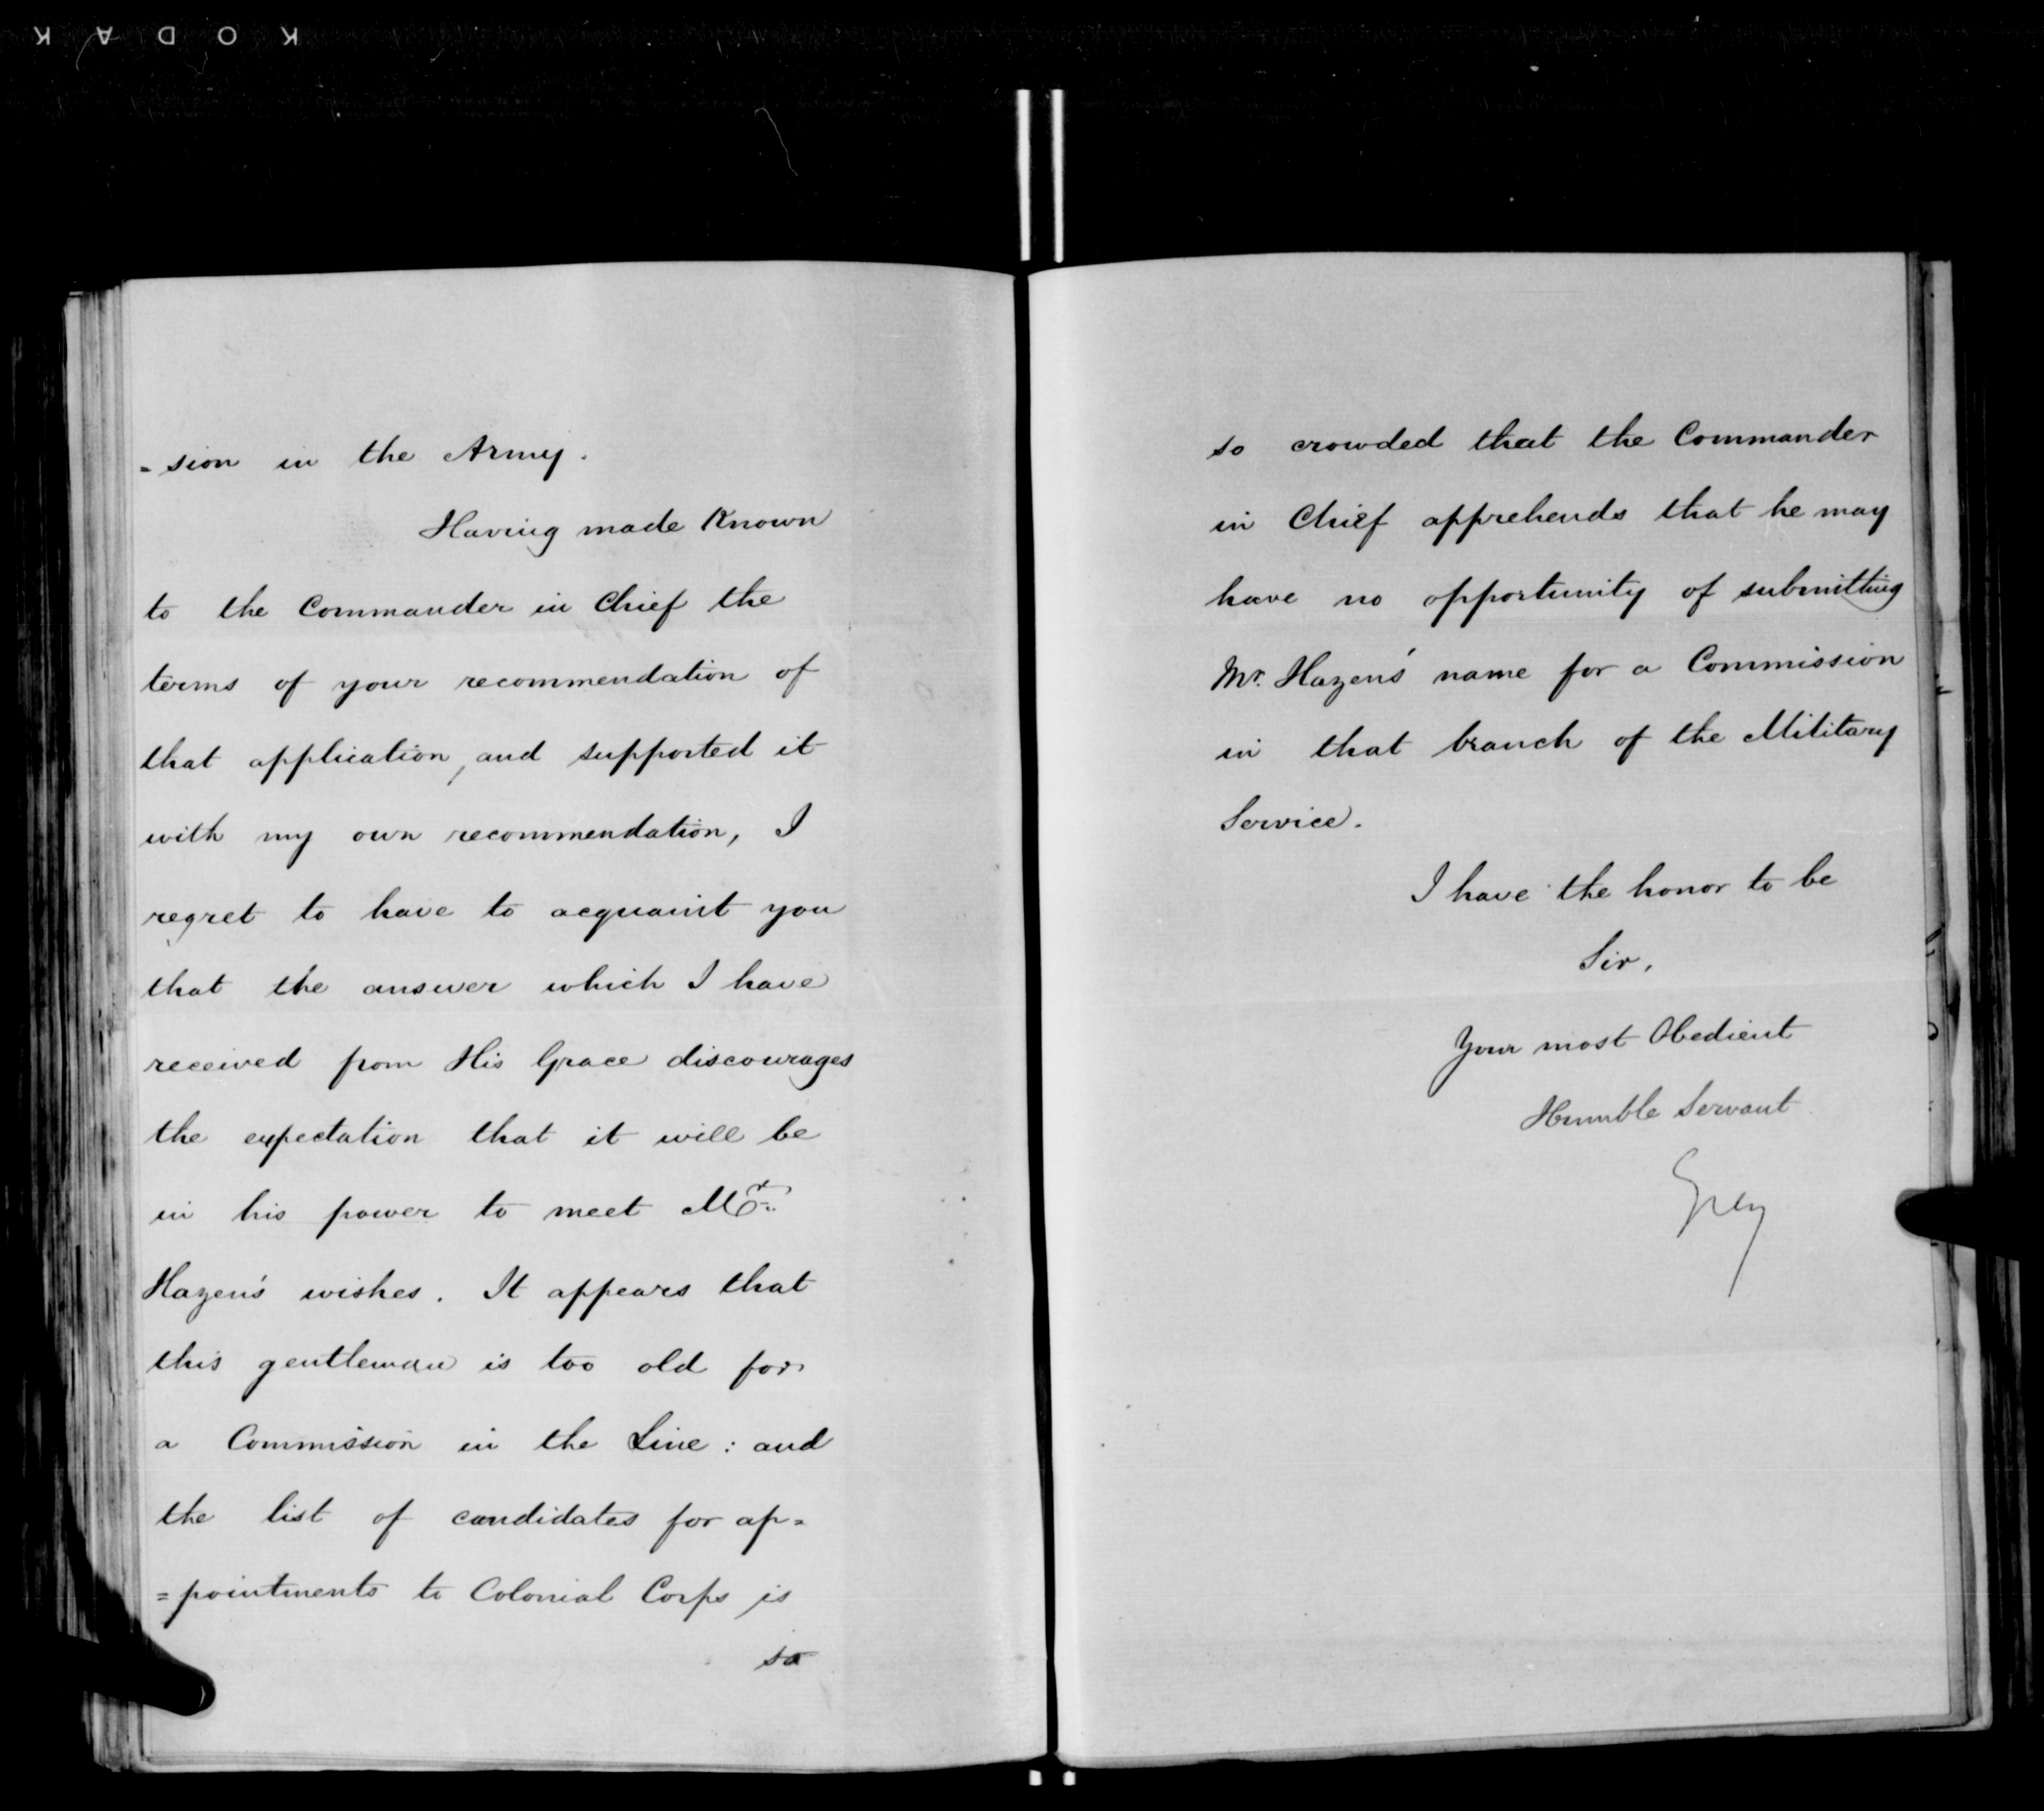 KODAK
=sion in the Army.
Having made Known
to the Commander in Chief the
terms of your recommendation of
that application, and supported it
with my own recommendation, I
regret to have to acquaint you
that the answer which I have
received from His Grace discourages
the expectation that it will be
in his power to meet Mr.
Hazen's wishes. It appears that
this gentleman is too old for
a Commission in the Line: and
the list of candidates for ap=
=pointments to Colonial Corps is
so
so crowded that the Commander
in Chief apprehends that he may
have no opportunity of submitting
Mr. Hazen's name for a Commission
in that branch of the Military
Service.
I have the honor to be
Sir,
Your most Obedient
Humble Servant
Grey